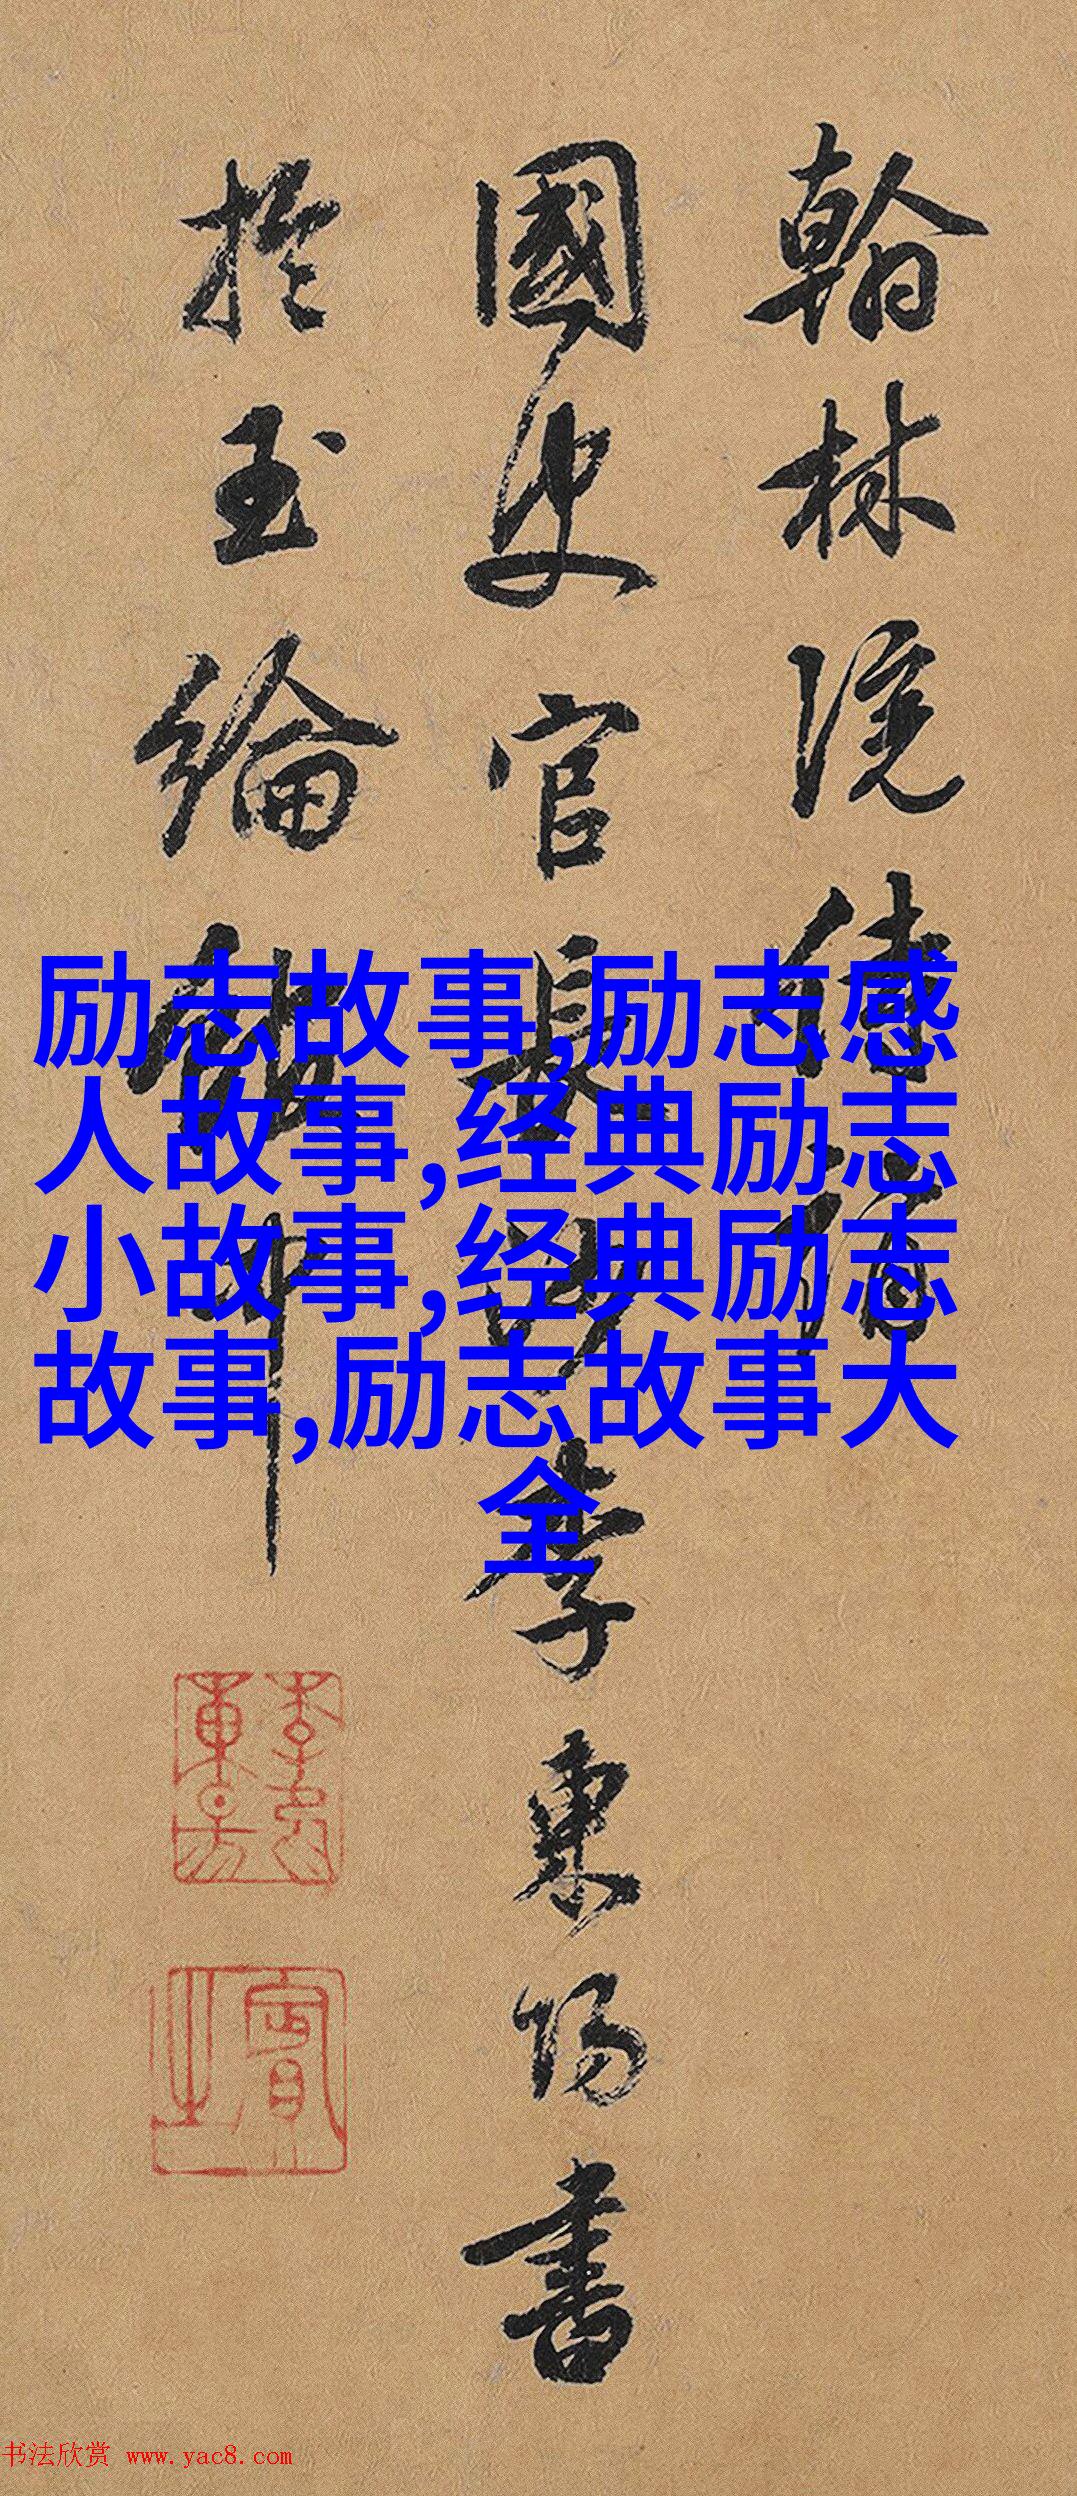 翰林院侍讀
國史官長沙李東陽書
於玉綸館中
励志故事,励志感
人故事,经典励志
小故事,经典励志
故事,励志故事大
全
书法欣赏 www.yac8.com